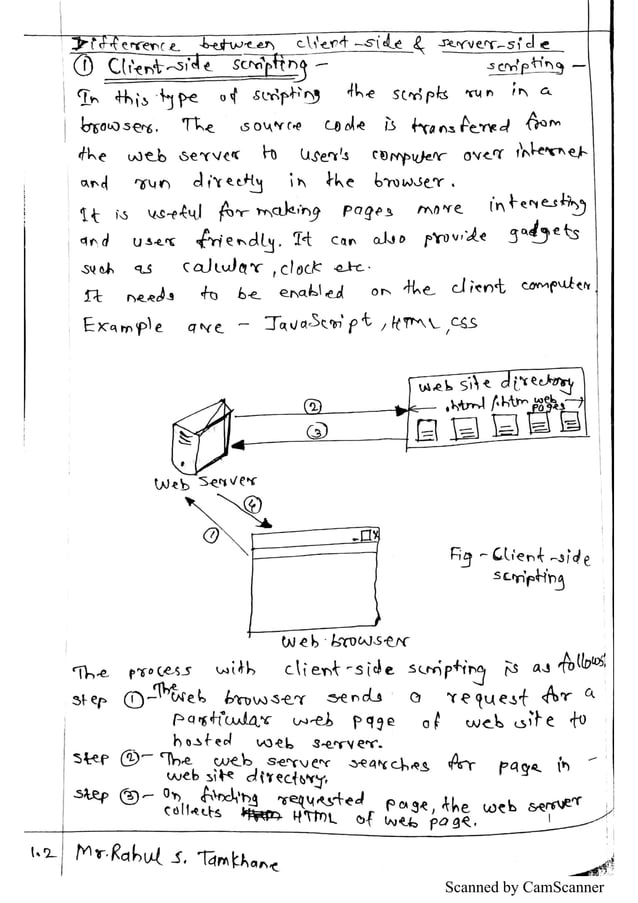 Difference between client-side & server-side
scripting -
① Client-side scripting -
In this type of scripting the scripts run in a
browsers. The source code is transfered from
the web server to user's computer over internet
and run directly in the browser.
It is useful for making pages more interesting
and user friendly. It can also provide gadgets
such as calcular, clock etc.
It needs to be enabled on the client computer.
Example are - JavaScript, HTML, CSS
web site directory
.html/.htm web
pages
②
③
web server
④
①
Fig - Client-side
scripting
web browser
The process with client-side scripting is as follows:
step ① - The web browser sends a request for a
particular web page of web site to
hosted web server.
step ② - The web server searches for page in -
web site directory.
step ③ - On finding requested page, the web server
collects HTML of web page.
1.2 Mr. Rahul S. Tamkhane
Scanned by CamScanner